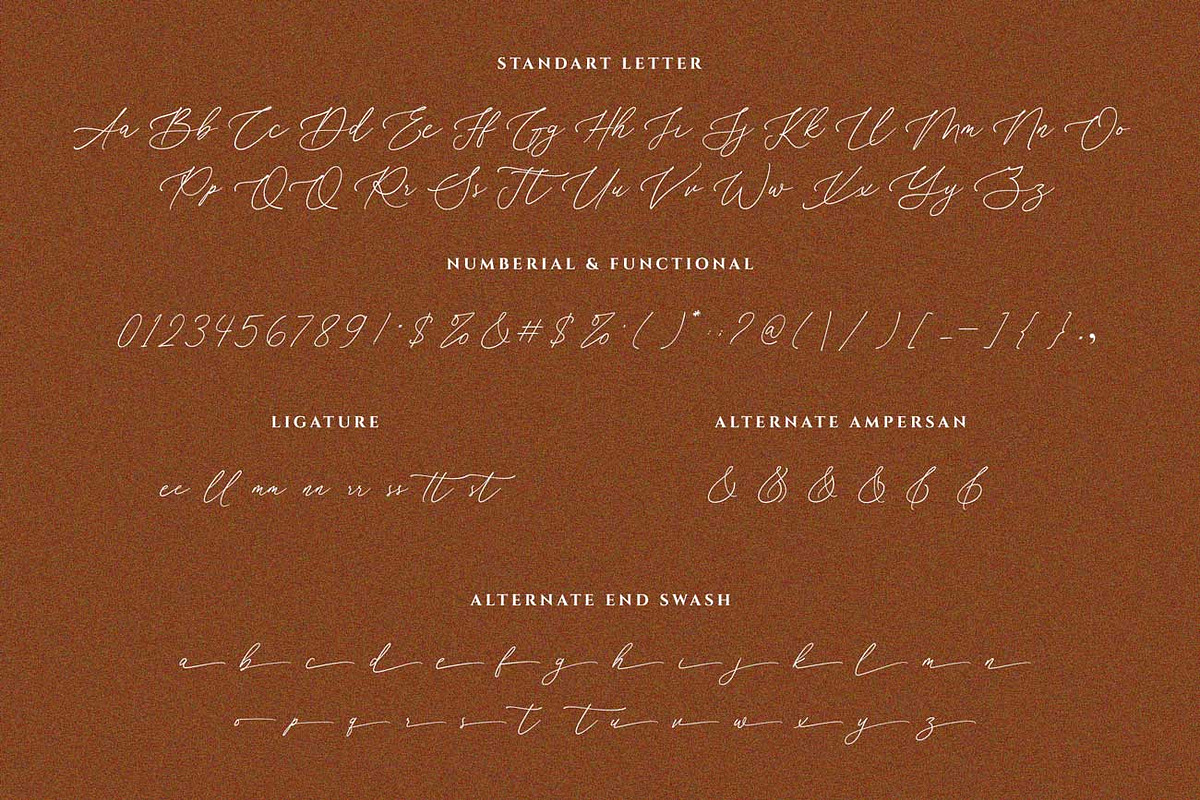 STANDART LETTER
Aa Bb Cc Dd Ee Ff Gg Hh Ii Jj Kk Ll Mm Nn Oo
Pp QQ Rr Ss Tt Uu Vv Ww Xx Yy Zz
NUMBERIAL & FUNCTIONAL
0123456789!·$%&#$%·()*:;?@(\/)[_—]{}.,
LIGATURE
ALTERNATE AMPERSAN
ee ll mm nn rr ss tt st
& & & & & &
ALTERNATE END SWASH
a b c d e f g h i j k l m n
o p q r s t t u v w x y z